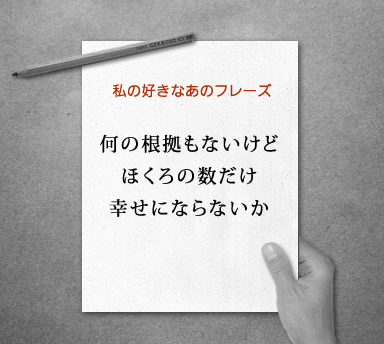 私の好きなあのフレーズ
何の根拠もないけど
ほくろの数だけ
幸せにならないか